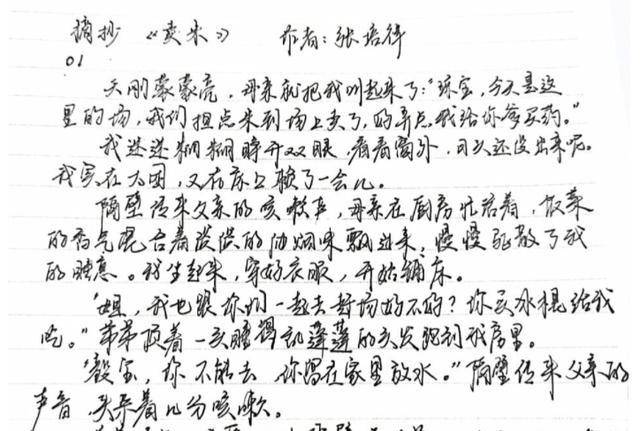 摘抄 《卖米》 作者:张培祥
01
天刚蒙蒙亮,母亲就把我叫起来了:"琼宝,今天是这
里的场,我们担点米到场上卖了,好弄点钱给你爹买药。"
我迷迷糊糊睁开双眼,看看窗外,日头还没出来呢。
我实在太困,又在床上赖了一会儿。
隔壁传来父亲的咳嗽声,母亲在厨房忙活着,饭菜
的香气混合着淡淡的油烟味飘过来,慢慢驱散了我
的睡意。我坐起来,穿好衣服,开始铺床。
"姐,我也跟你们一起去赶场好不好?你买冰棍给我
吃。"弟弟顶着一头睡得乱蓬蓬的头发跑到我房里。
"毅宝,你不能去,你留在家里放水。"隔壁传来父亲的
声音,夹杂着几分咳嗽。